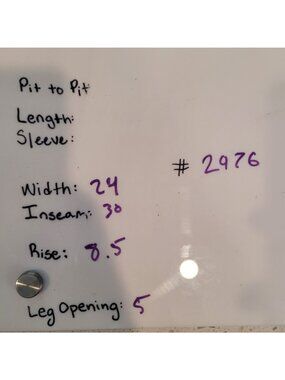 Pit to Pit
Length:
Sleeve:
# 2976
Width: 24
Inseam: 30
Rise: 8.5
Leg Opening: 5